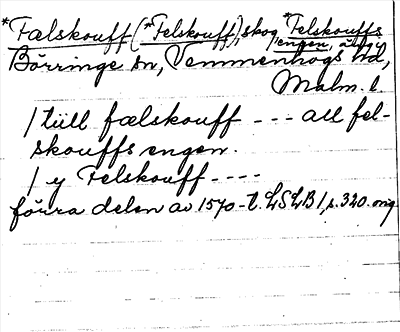 *Fælskouff (*Felskouff), skog, *Felskouffs
engen, äng,
Börringe sn, Vemmenhögs hd,
Malm. l.
/ tiill fælskouff --- all fel-
skouffs engen.
/ y Felskouff ----
förra delen av 1570-t. LSLB 1, s. 320. orig